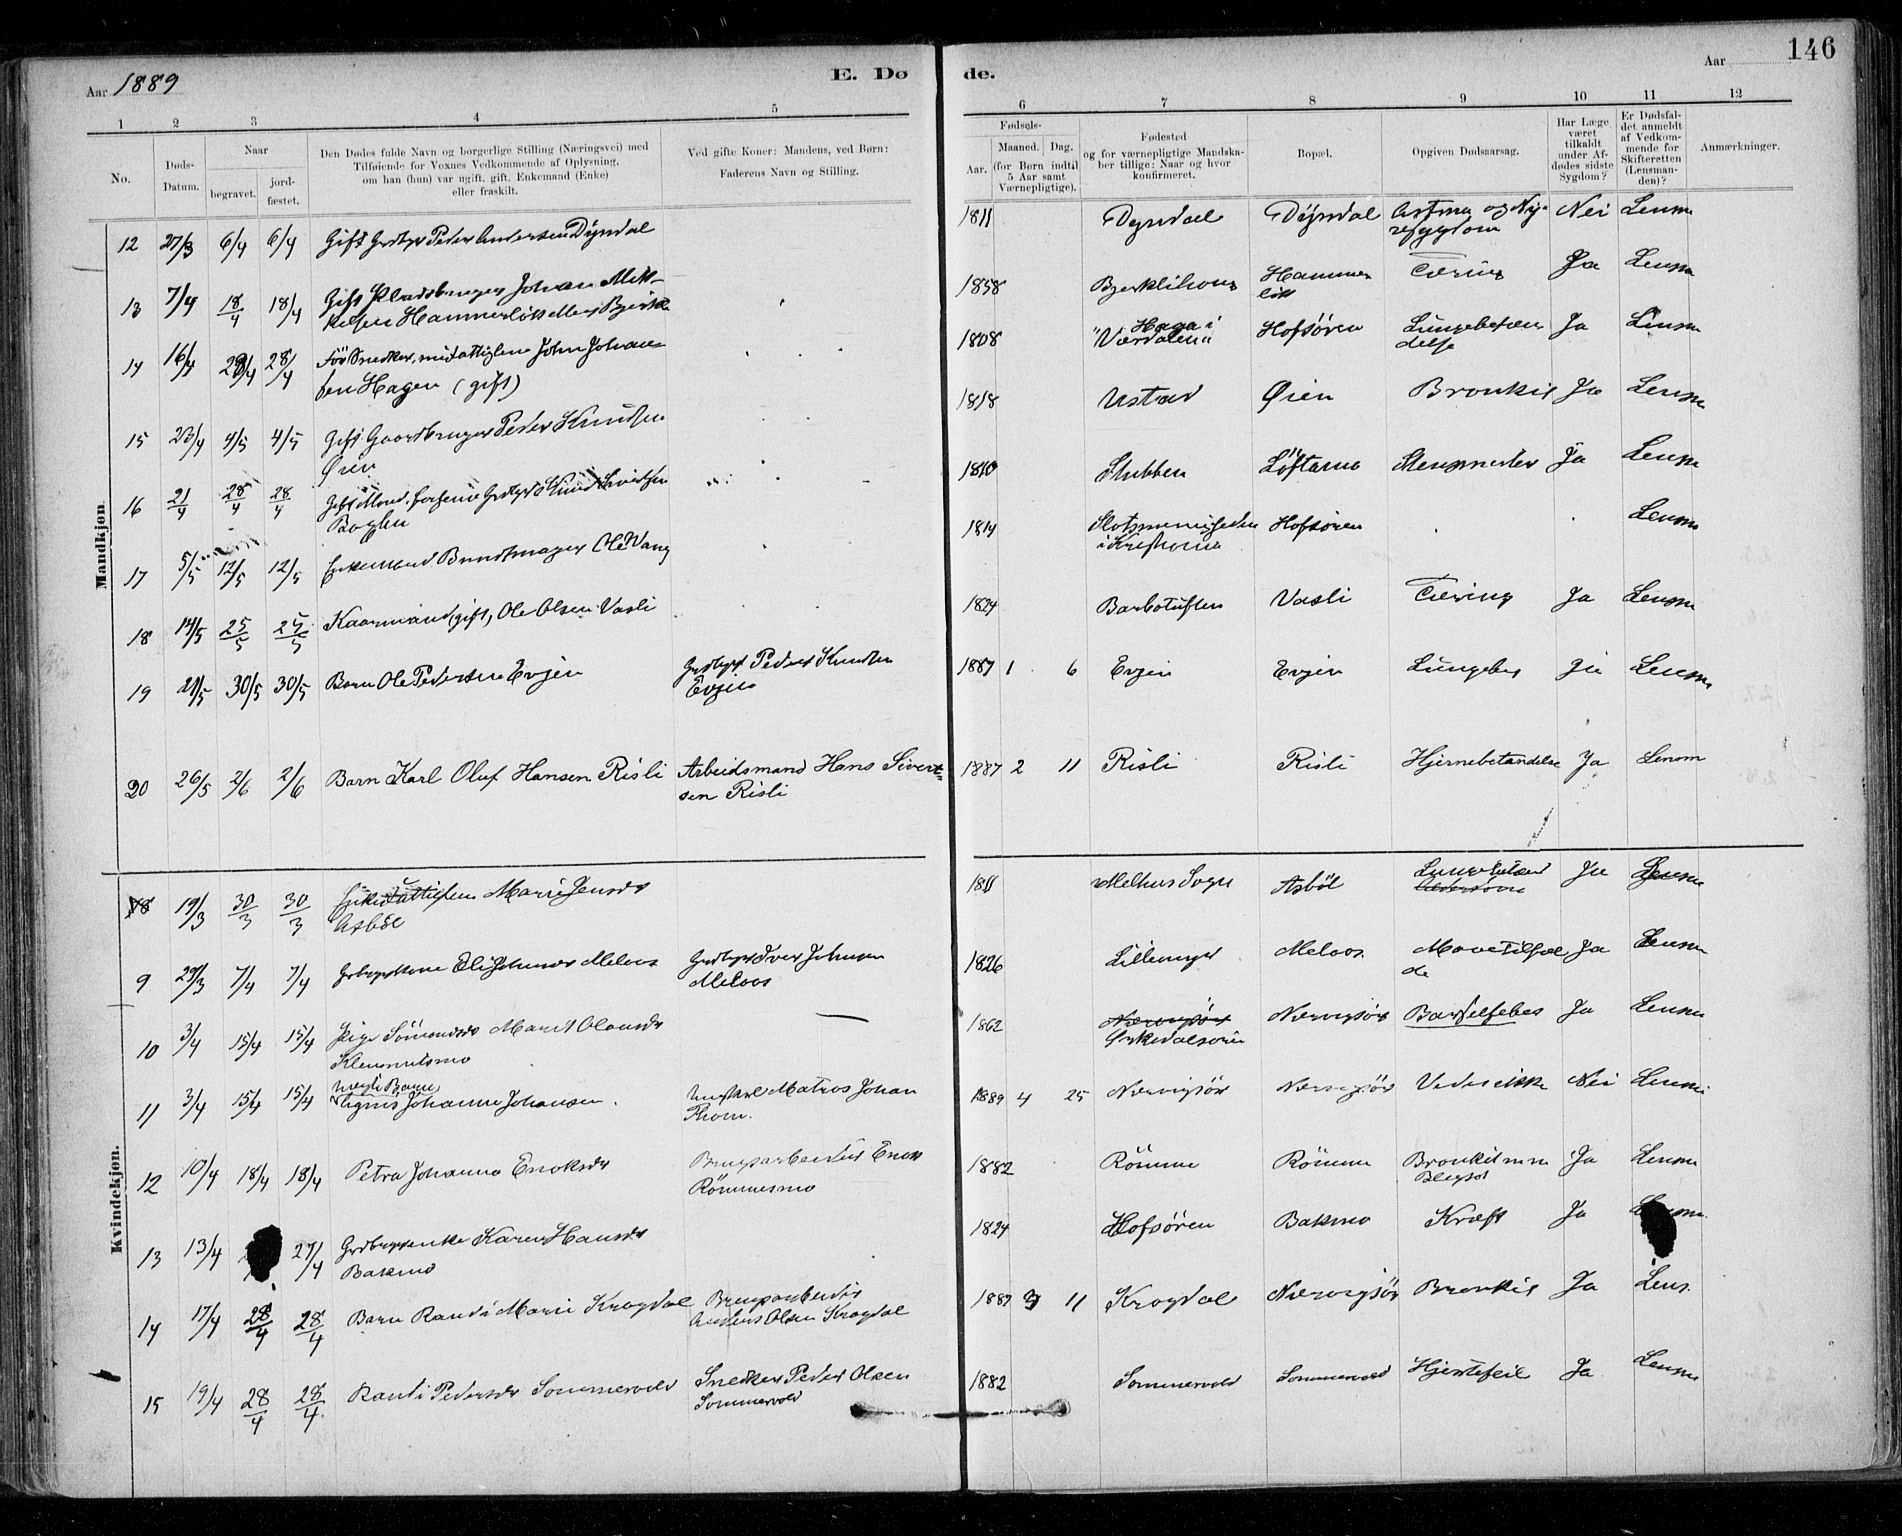 Aar 1889
E. Dø de.
Aar 146
1 2 3 4 5 6 7 8 9 10 11 12
No.
Døds-Datum.
Naar
begravet.
jord-fæstet.
Den Dødes fulde Navn og borgerlige Stilling (Næringsvei) med
Tilføiende for Voxnes Vedkommende af Oplysning,
om han (hun) var ugift, gift, Enkemand (Enke)
eller fraskilt.
Ved gifte Koner: Mandens, ved Børn:
Faderens Navn og Stilling.
Fødsels-
Aar. Maaned. Dag.
(for Børn indtil
5 Aar samt
Værnepligtige).
Fødested
og for værnepligtige Mandska-
ber tillige: Naar og hvor
konfirmeret.
Bopæl.
Opgiven Dødsaarsag.
Har Læge
været
tilkaldt
under Af-
dødes sidste
Sygdom?
Er Dødsfal-
det anmeldt
af Vedkom-
mende for
Skifteretten
(Lensman-
den)?
Anmærkninger.
Mandkjøn
12 27/3 6/4 6/4 Gift Grdbgr Peder Andersen Dyndal 1811 Dyndal Dyndal Astma og Ny-
resygdom Nei Lensm
13 7/4 18/4 18/4 Gift Pladsbruger Johan Mik-
kelsen Hammerløkk 1838 Hammer
løkk Tæring Ja Lensm
14 16/4 28/4 28/4 Før Snedker, nu fattiglem John Johan-
sen Hagen (gift) 1808 Haga i
Værdalen Hofsøren Lungebetæn
delse Ja Lensm
15 23/4 4/5 4/5 Gift Gaardbruger Peder Knudsen
Øien 1818 Ustad Øien Bronkit Ja Lensm
16 21/4 28/4 28/4 Gift Mand, Grdbgr Knud 1810 Stubben Ja Lensm
17 5/5 12/5 12/5 Enkemand Buntmager Ole Wang 1814 Hofsøren Lensm
18 14/5 25/5 25/5 Kaarmand (gift) Ole Olsen Vasli 1824 Barbotuften Vasli Tæring Ja Lensm
19 21/5 30/5 30/5 Barn Ole Pedersen Evjen Grdbgr Peder Knudsen
Evjen 1887 1 6 Evjen Evjen Lungebet Ja Lensm
20 26/5 2/6 2/6 Barn Karl Oluf Hansen Risli Arbeidsmand Hans Sivert-
sen Risli 1887 2 11 Risli Risli Hjernebetændelse Ja Lensm
Kvindekjøn.
8 19/3 30/3 30/3 Enke Marie Jensdr
Asbøl 1811 Melhus Sogn Asbøl Lungebetænd
Ja Lensm
9 29/3 7/4 7/4 Grbrgrskone Eli Johnsdr Meloos Grdbgr Iver Johnsen
Meloos 1826 Lillemyr Meloos Mavetilfæl
de Ja Lensm
10 3/4 15/4 15/4 Pige Marit Olausdr
Klemmetsmo 1862 Nervigsør
Orkedalsøren Nervigsør Barselfeber Ja Lensm
11 3/4 15/4 15/4 uegte Barn
Agnes Johanne Johansen. Ungkarl Matros Johan
Thom. 1889 4 25 Nervigsør Nervigsør Vides ikke Nei Lensm
12 10/4 18/4 18/4 Petra Johanna Enoksdr Brugsarbeider Enok
Rømmesmo 1882 Rømme Rømme Bronkit
Ja Lensm
13 13/4 27/4 Grdbrgrenke Karen Hansdr
Bakmo 1824 Hofsøren Bakmo Kræft Ja
14 17/4 28/4 28/4 Barn Randi Marie Krogdal Brugsarbeider
Anders Olsen Krogdal 1887 3 11 Krogdal Nervigsør Bronkit Ja Lens.
15 19/4 28/4 28/4 Randi Pedersdr Sommervold Snedker Peder Olsen
Sommervold 1882 Sommervold Sommervold Hjertefeil Ja Lensm